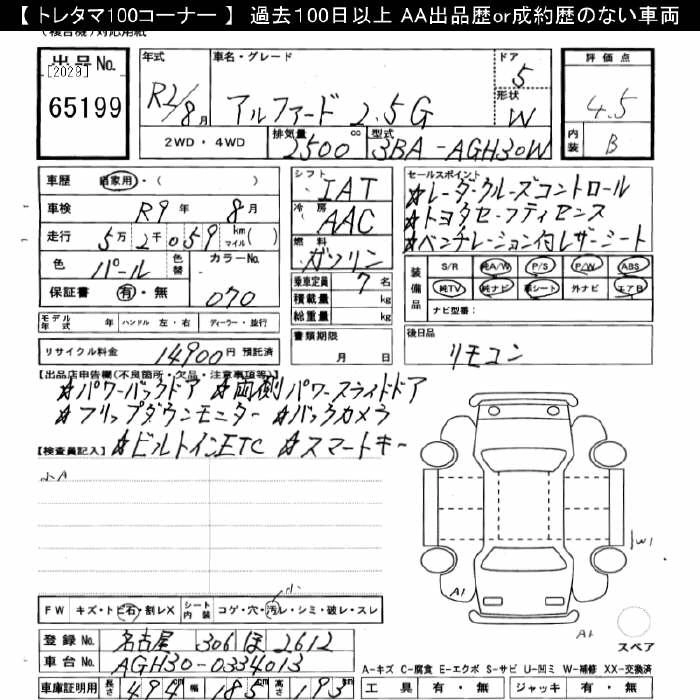 【 トレタマ100コーナー 】 過去100日以上 AA出品歴or成約歴のない車両
出品No. 年式 車名・グレード ドア 評価点
[2029] 5
65199 R2/8月 アルファード 2.5G 形状 4.5
W
2WD・4WD 排気量 2500 cc 型式 3BA-AGH30W 内装 B
車歴 自家用・( ) シフト IAT セールスポイント
車検 R9年 8月 冷房 AAC ☆レーダークルーズコントロール
☆トヨタセーフティセンス
走行 5万2千059 km マイル( ) 燃料 ガソリン ☆ベンチレーション付レザーシート
色 パール 色替 カラーNo. 乗車定員 7名 装備品 S/R 純A/W P/S P/W ABS
保証書 有・無 070 積載量 kg 純TV 純ナビ 革シート 外ナビ エアB
総重量 kg ナビ型番:
モデル年式 年 ハンドル 左・右 ディーラー・並行
書類期限 月 日 後日品
リサイクル料金 14900円 預託済 リモコン
【出品店申告欄(不良箇所・欠品・注意事項等)】
☆パワーバックドア ☆両側パワースライドドア
☆フリップダウンモニター ☆バックカメラ
☆ビルトインETC ☆スマートキー
【検査員記入】
小A
W1
A1
小
FW キズ・トビ石・割レX シート内装 コゲ・穴・汚レ・シミ・破レ・スレ
A1
スペア
登録No. 名古屋 306 ほ 2612
車台No. AGH30-0334013
A-キズ C-腐食 E-エクボ S-サビ U-凹ミ W-補修 XX-交換済
車庫証明用 長さ 494cm 幅 185cm 高さ 193cm 工具 有・無 ジャッキ 有・無